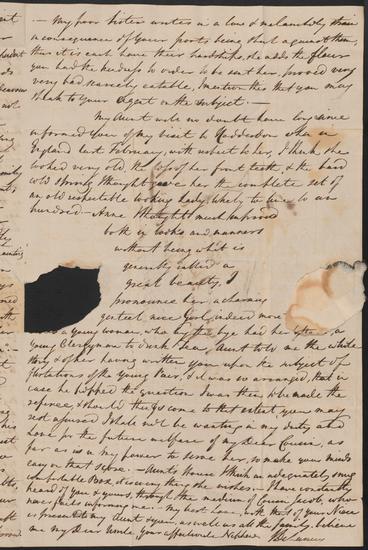 — My poor Sister writes in a low & melancholy strain
in consequence of your ports being shut against them,
thus it is each have their hardships, she adds the flour
you had the kindness to order to be sent her, proved very
very bad scarcely eatable, I mention this that you may
speak to your Agent on the subject. —
My Aunt will no doubt have long since
informed you of my visit to when in
England last February, with respect to her, I think she
looked very old the loss of her front teeth, & the hard
cold I thought gave her the complete set of
an old respectable looking lady, likely to live to an
hundred — Anne I thought much improved
both in looks and manners
without being what is
generally called a
great beauty, I
pronounce her a charming
genteel nice girl, indeed more
a young woman, who had her
young Clergyman to her, Aunt told me the whole
story & of her having written you upon the subject of
flirtations of the young Pair, & it was so arranged, that in
case he popped the question I was to be made the
referee, & should things come to that extent, you may
rest assured I shall not be wanting in my duty and
love for the future welfare of my Dear Cousin, as
far as is in my power to serve her, so make your mind
easy on that score. — Aunts House I think an adequately snug
comfortable Box, & possessing she wishes — I have constantly
heard of you & yours, through the medium of Cousin Jacob, who
never fails informing me — My best love, with that of your Niece
is presented to my Aunt & your, as well as all the family, believe
me my Dear Uncle, your affectionate Nephew